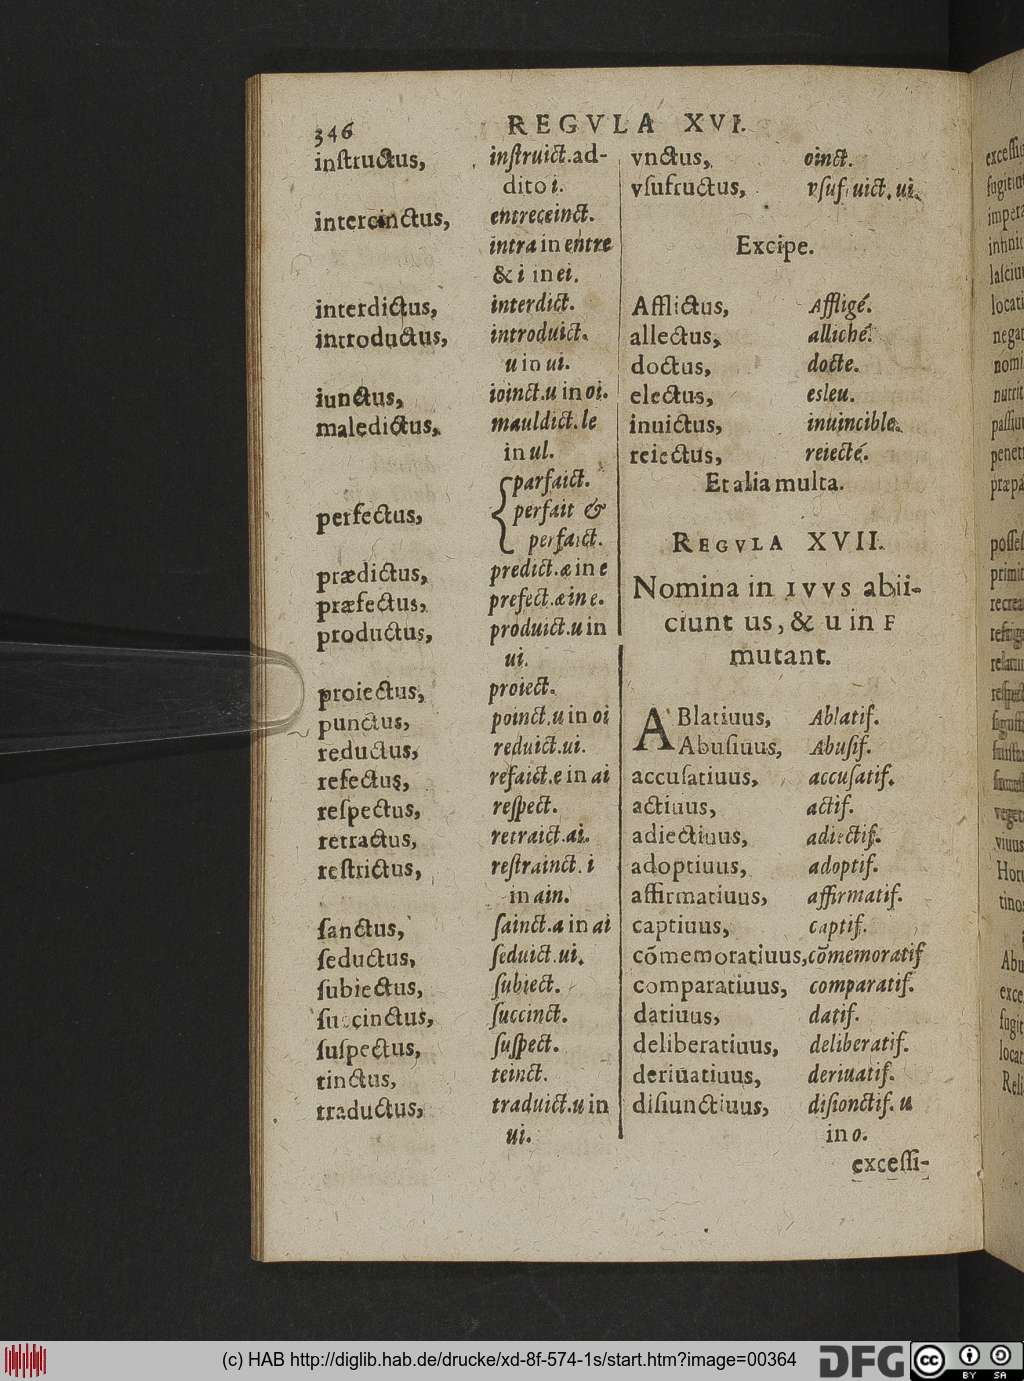 346
REGVLA XVI.
inſtructus, inſtruict.ad-
dito i.
intercinctus, entreceinct.
intra in entre
& i in ei.
interdictus, interdict.
introductus, introduict.
u in ui.
iunctus, ioinct.u in oi.
maledictus, mauldict.le
in ul.
parfaict.
perfectus, perfait &
perfaict.
prædictus, predict.æ in e
præfectus, prefect.æ in e.
productus, produict.u in
ui.
proiectus, proiect.
punctus, poinct.u in oi
reductus, reduict.ui.
refectus, refaict.e in ai
reſpectus, reſpect.
retractus, retraict.ai.
reſtrictus, reſtrainct.i
in ain.
ſanctus, ſainct.a in ai
ſeductus, ſeduict.ui.
ſubiectus, ſubiect.
ſuccinctus, ſuccinct.
ſuſpectus, ſuſpect.
tinctus, teinct.
traductus, traduict.u in
ui.
vnctus, oinct.
vſufructus, vſufruict.ui.
Excipe.
Afflictus, Affligé.
allectus, alliché.
doctus, docte.
electus, esleu.
inuictus, inuincible.
reiectus, reiecté.
Et alia multa.
REGVLA XVII.
Nomina in IVVS abii-
ciunt us, & u in F
mutant.
ABlatiuus, Ablatif.
Abuſiuus, Abuſif.
accuſatiuus, accuſatif.
actiuus, actif.
adiectiuus, adiectif.
adoptiuus, adoptif.
affirmatiuus, affirmatif.
captiuus, captif.
cõmemoratiuus, cõmemoratif
comparatiuus, comparatif.
datiuus, datif.
deliberatiuus, deliberatif.
deriuatiuus, deriuatif.
diſiunctiuus, diſionctif. u
in o.
exceſſi-
(c) HAB http://diglib.hab.de/drucke/xd-8f-574-1s/start.htm?image=00364
DFG
cc
BY SA